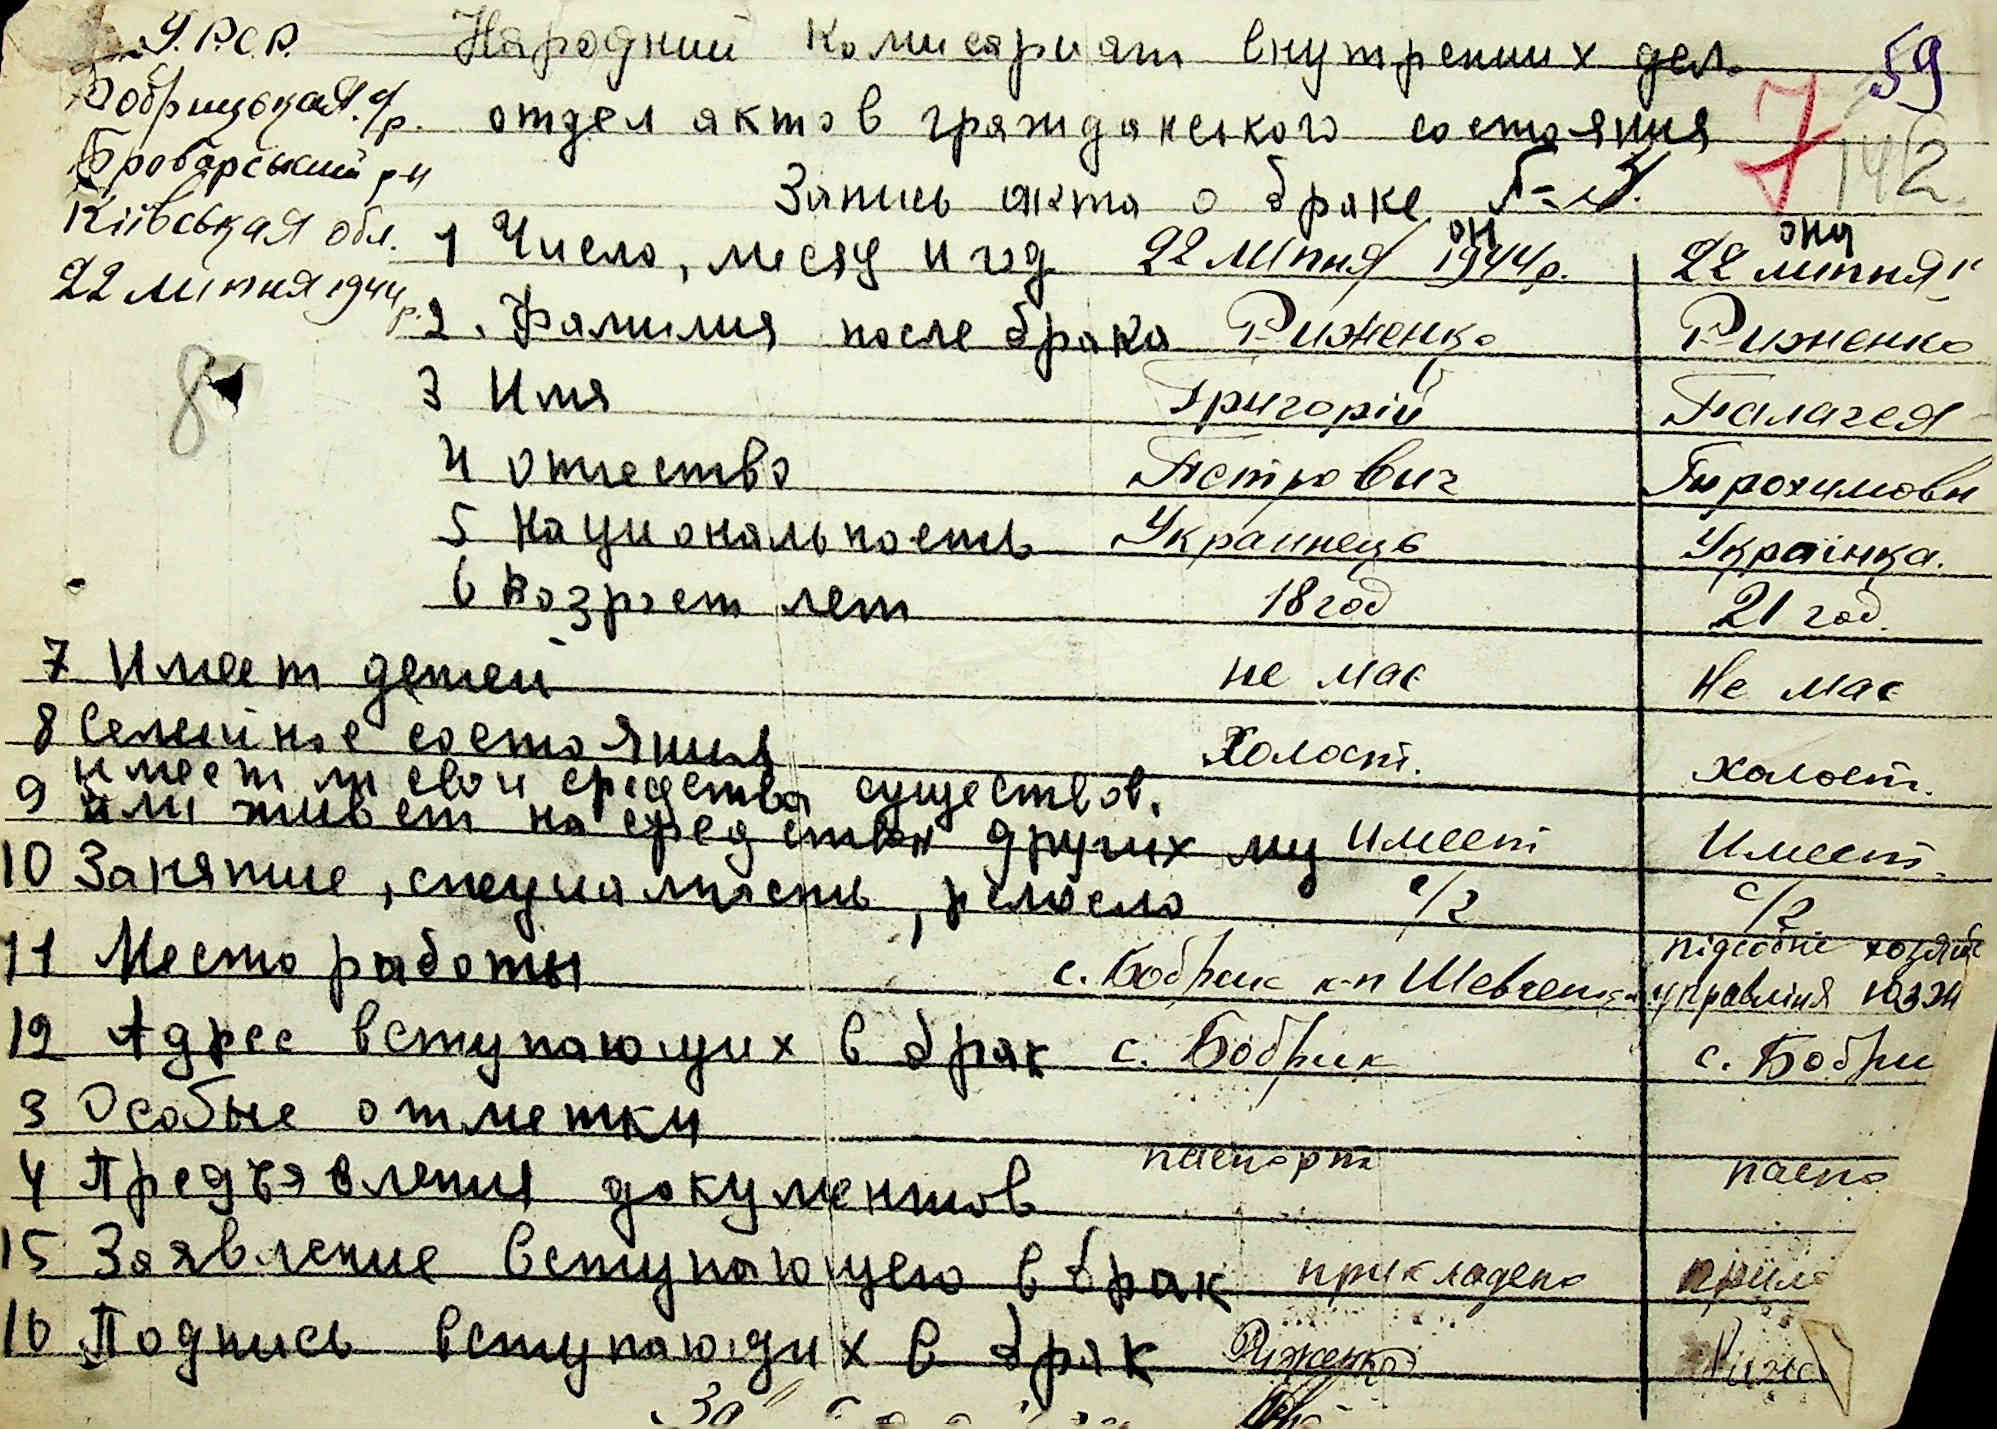 У.Р.С.Р. Народний комисариат внутрених дел. 59
Бобрицькая с/р. отдел актов гражданского состояния 7 142
Броварський р-н Запись акта о браке
Київськая обл. он она
22 липня 1944 р.
1 Число, месяц и год 22 липня 1944 р. 22 липня
2. Фамилия после брака Риженко Риженко
8
3 Имя Григорій Палагея
4 отчество Петрович Тирохимовн
5 Национальность Украинець Українка.
6 возраст лет 18 год 21 год.
7 Имеет детей не має Не має
8 Семейное состояния Холост. холост.
имеет ли свои средства существов.
9 или живет на средствах других лиц имеет Имеет.
10 Занятие, специалность, ремесло с/г с/г
11 Место работы с. Бобрик к-п Шевченка підсобне хозяйс
управлiня ЮЗЖ
12 Адрес вступающих в брак с. Бобрик с. Бобри
3 Особые отметки
4 Предъявления документов паспорт паспо
15 Заявление вступающею в брак прикладено прило
16 Подпись вступающих в брак Риженко Риже